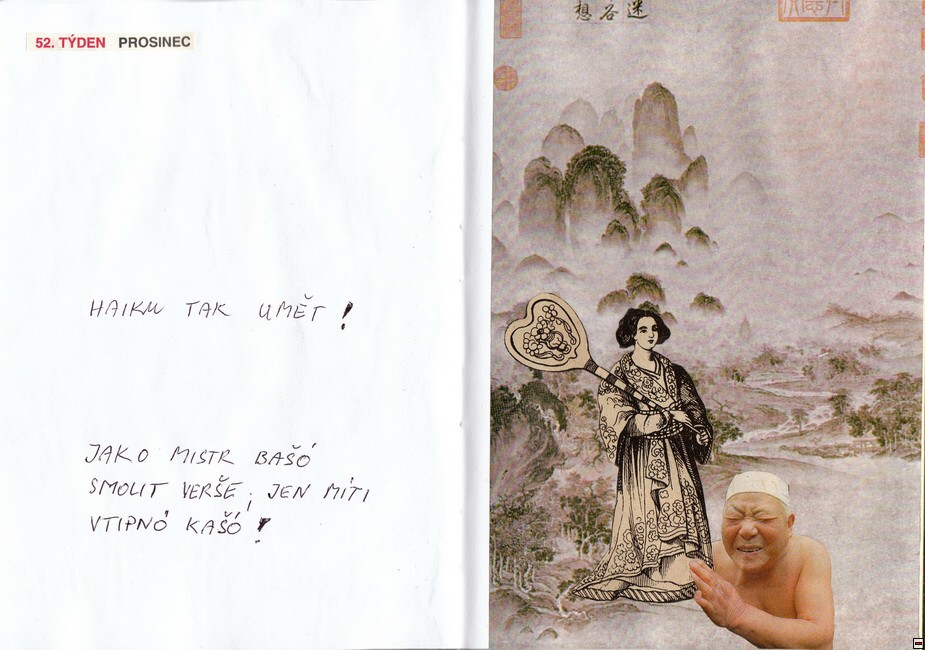 52. TÝDEN PROSINEC
HAIKU TAK UMĚT !
JAKO MISTR BAŠÓ
SMOLIT VERŠE, JEN MÍTI
VTIPNÓ KAŠÓ !
想谷迷